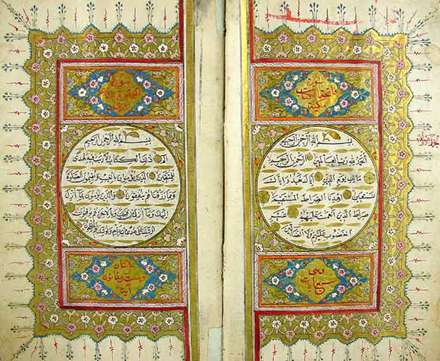 بسم الله الرحمن الرحيم
الحمد لله رب العالمين الرحمن الرحيم
مالك يوم الدين اياك نعبد واياك
نستعين اهدنا الصراط المستقيم
صراط الذين انعمت عليهم غير
المغضوب عليهم ولا الضالين
بسم الله الرحمن الرحيم
الم ذلك الكتاب لا ريب فيه هدى
للمتقين الذين يؤمنون بالغيب ويقيمون الصلوة
ومما رزقناهم ينفقون والذين يؤمنون بما انزل
اليك وما انزل من قبلك وبالاخرة هم يوقنون
اولئك على هدى من ربهم واولئك هم المفلحون